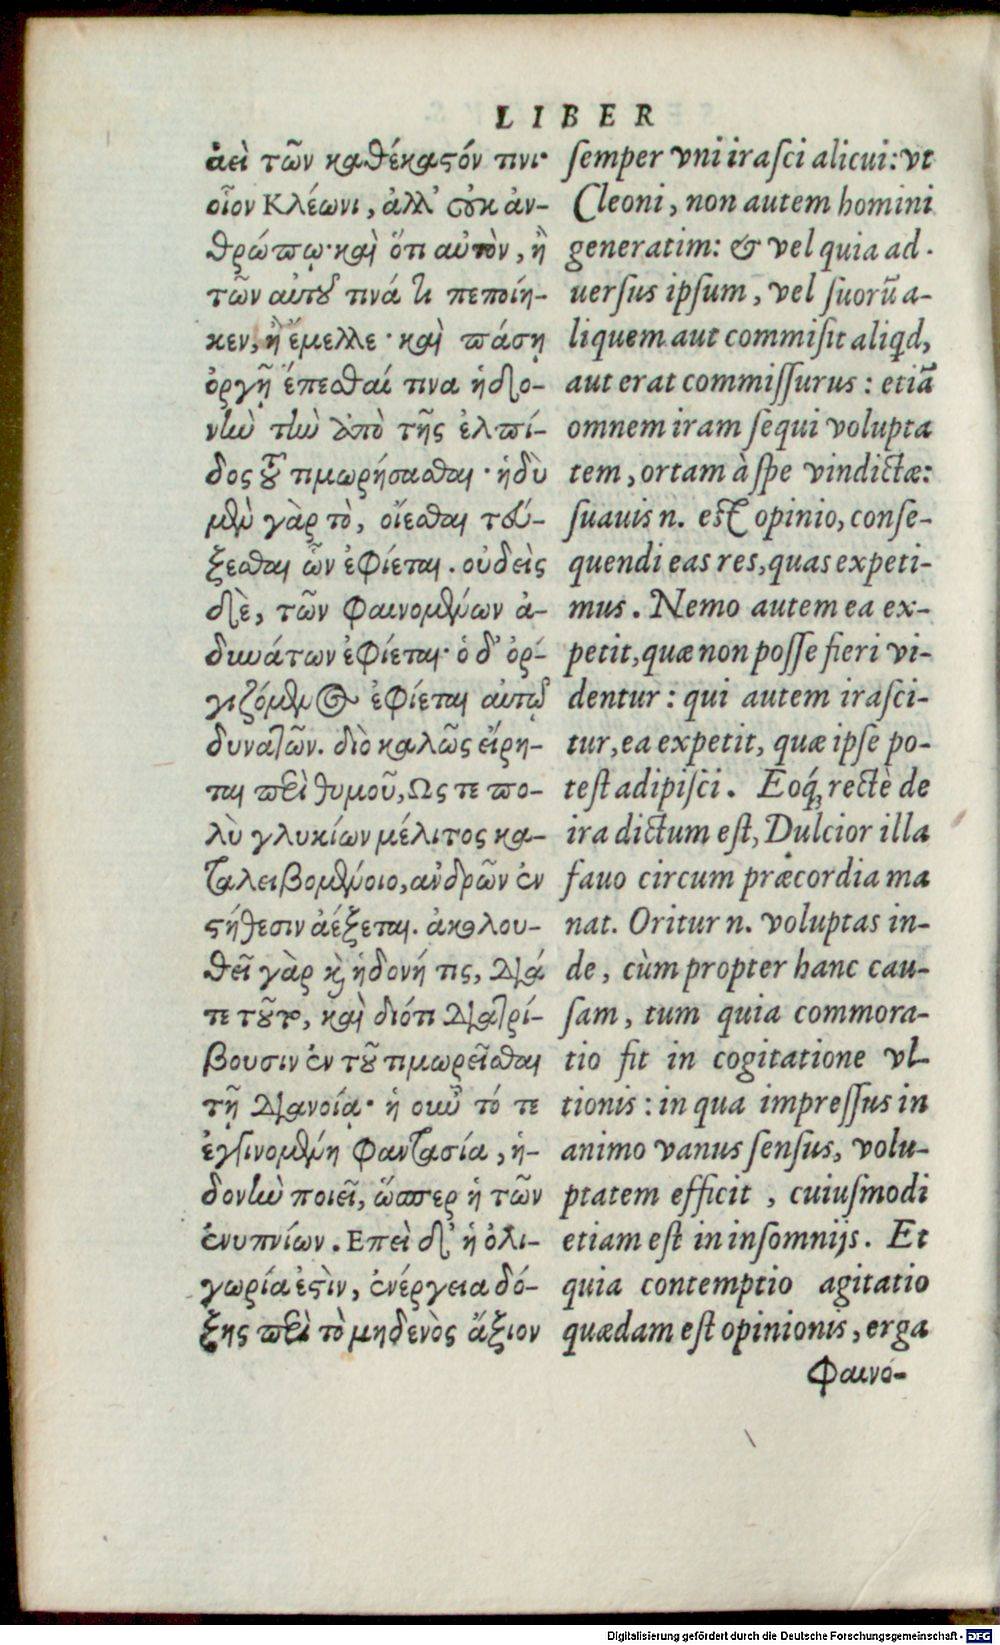 LIBER
ἀεὶ τῶν καθέκαστόν τινι·
οἷον Κλέωνι, ἀλλ' οὐκ ἀν-
θρώπῳ· καὶ ὅτι αὐτὸν, ἢ
τῶν αὐτοῦ τινά τι πεποίη-
κεν, ἢ ἔμελλε· καὶ πάσῃ
ὀργῇ ἕπεσθαί τινα ἡδο-
νὴν τὴν ἀπὸ τῆς ἐλπί-
δος τοῦ τιμωρήσασθαι· ἡδὺ
μὲν γὰρ τὸ, οἴεσθαι τεύ-
ξεσθαι ὧν ἐφίεται. οὐδεὶς
δὲ, τῶν φαινομένων ἀ-
δυνάτων ἐφίεται· ὁ δ' ὀρ-
γιζόμενος ἐφίεται αὑτῷ
δυνατῶν. διὸ καλῶς εἴρη-
ται περὶ θυμοῦ, Ως τε πο-
λὺ γλυκίων μέλιτος κα-
ταλειβομένοιο, ανδρῶν ἐν
στήθεσιν ἀέξεται. ἀκολου-
θεῖ γὰρ καὶ ἡδονή τις, διά
τε τοῦτο, καὶ διότι διατρί-
βουσιν ἐν τοῦ τιμωρεῖσθαι
τῇ διανοίᾳ· ἡ οὖν τό τε
ἐγγινομένη φαντασία, ἡ-
δονὴν ποιεῖ, ὥσπερ ἡ τῶν
ἐνυπνίων. Επεὶ δ' ἡ ὀλι-
γωρία ἐστὶν, ἐνέργεια δό-
ξης περὶ τὸ μηδενὸς ἄξιον
semper vni irasci alicui: vt
Cleoni, non autem homini
generatim: & vel quia ad-
uersus ipsum, vel suorũ a-
liquem aut commisit aliqd,
aut erat commissurus: etiã
omnem iram sequi volupta
tem, ortam à spe vindictæ:
suauis n. est opinio, conse-
quendi eas res, quas expeti-
mus. Nemo autem ea ex-
petit, quæ non posse fieri vi-
dentur: qui autem irasci-
tur, ea expetit, quæ ipse po-
test adipisci. Eoq́; rectè de
ira dictum est, Dulcior illa
fauo circum præcordia ma
nat. Oritur n. voluptas in-
de, cùm propter hanc cau-
sam, tum quia commora-
tio fit in cogitatione vl-
tionis: in qua impressus in
animo vanus sensus, volu-
ptatem efficit, cuiusmodi
etiam est in insomnijs. Et
quia contemptio agitatio
quædam est opinionis, erga
φαινό-
Digitalisierung gefördert durch die Deutsche Forschungsgemeinschaft - DFG